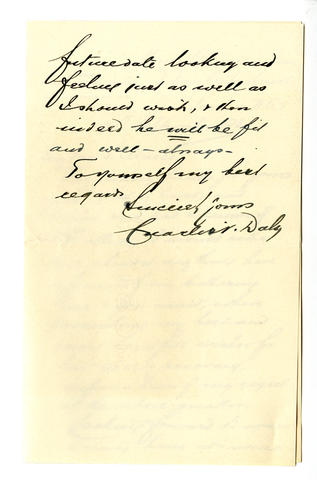 future date looking and
feeling just as well as
I should wish, & then
indeed he will be fit
and well - always -
To yourself my best
regards
Sincerely yours
Charles P. Daly